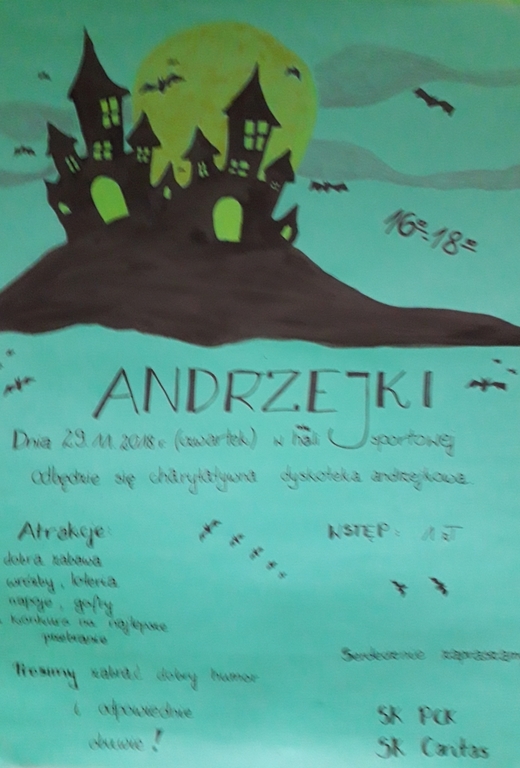 16⁰⁰-18⁰⁰
ANDRZEJKI
Dnia 29.11.2018r. (czwartek) w hali sportowej
odbędzie się charytatywna dyskoteka andrzejkowa.
Atrakcje:
dobra zabawa
wróżby, loteria
napoje, gofry
konkurs na najlepsze
przebranie
WSTĘP: 1
Serdecznie zapraszam
Prosimy zabrać dobry humor
i odpowiednie
obuwie!
SK PCK
SK Caritas